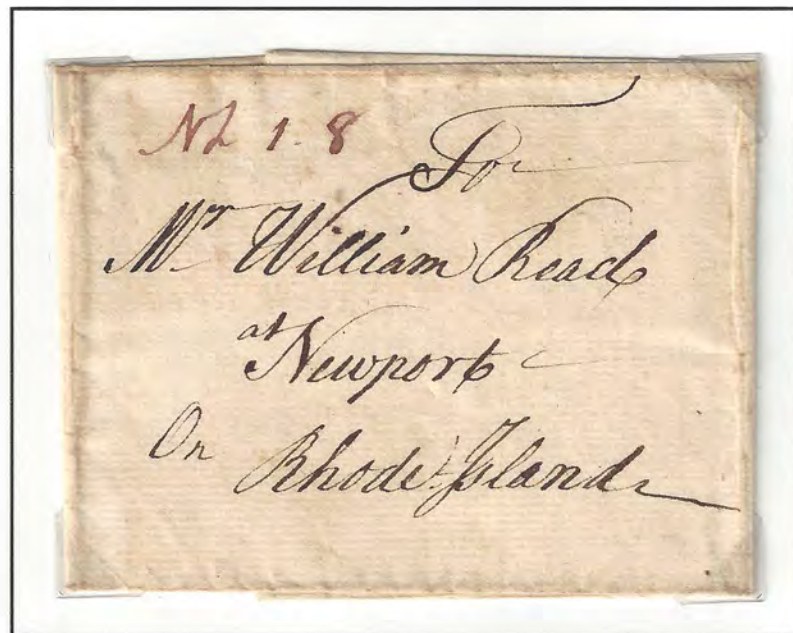 NL 1.8
To
Mr William Read
at
Newport
On Rhode Island